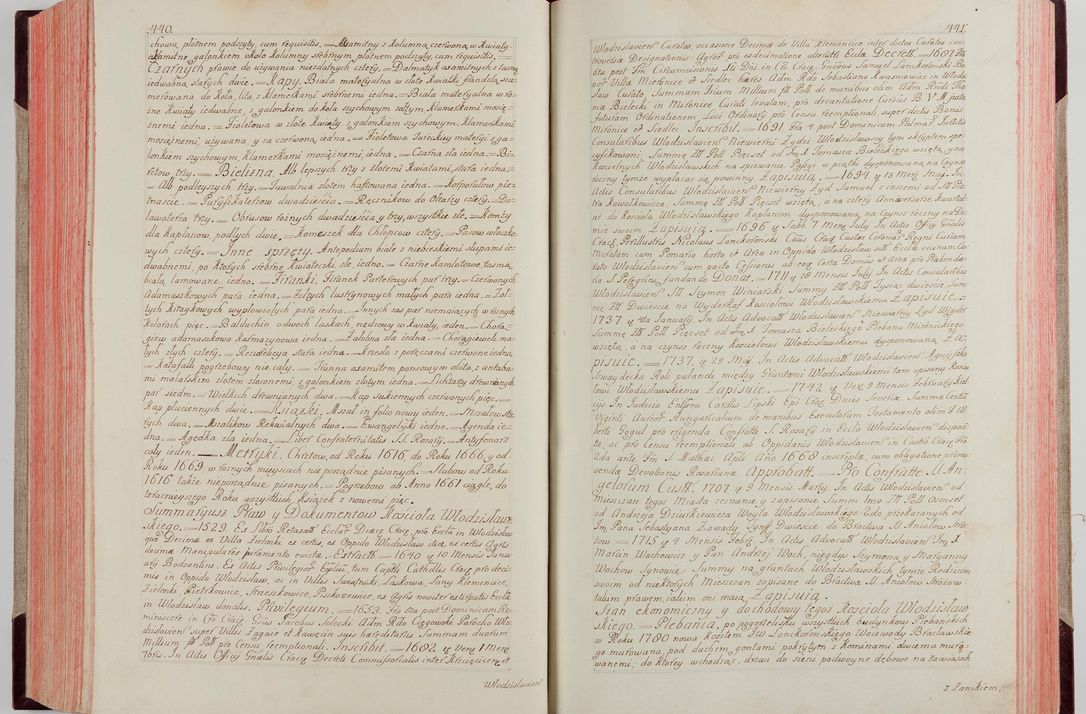 440.
chową płotnem podszyty, cum requisitis. — Axamitny z kolumną czerwoną w kwiaty
axamitne galonkiem około kolumny srebrnym, płotnem podszyty, cum requisitis. —
Czarnych prawie do używania niezdatnych cztery. — Dalmatyk axamitnych czarnych
iedwabną, starych dwie. — Kapy. Biała materyalna w złote kwiatki frandzlą, sza-
merowana do koła, iſta, z klamerkami srebrnemi iedna. — Biała materyalna w ro-
żne kwiaty iedwabne, z galonkiem do koła szychowym żołtym, klamerkami mosię-
żnemi iedna. — Fioletowa w złote kwiaty z galonkiem szychowym, klamerkami
mosiężnemi, używana, y za czerwoną, iedna. — Fioletowa tureckiey materyi z ga-
lonkiem szychowym, klamerkami mosiężnemi, iedna. — Czarna zła iedna. — Bi-
retow trzy. — Bielizna. Alb lepszych trzy z złotemi kwiatami, stara iedna. —
— Alb podleyszych trzy. — Tuwalnia złotem haftowana iedna. — Korporałow pie-
tnaście. — Puryfikaterzow dwadzieścia. — Ręcznikow do Ołtarzy cztery. — Do-
lawaterza trzy. — Obrusow rożnych dwadzieścia y trzy, wszystkie złe. — Komży
dla Kapłanow, podłych dwie. — Komeszek dla Chłopcow cztery. — Pasow włoczko-
wych cztery. — Inne sprzęty. Antepedium białe z niebieskiemi słupami ie-
dwabnemi, po ktorych srebrne kwiateczki złe, iedno. — Czarne kamlotowe, taśmą
białą lamowane, iedno. — Firanki. Firanek Portertowych par trzy. — Czerwonych
Adamaszkowych para iedna. — Żołtych lustrynowych małych para iedna. — Żoł-
tych kitaykowych wypłowiałych para iedna. — Innych zaś par niemaiących w rożnych
kolorach pięc. — Baldachin o dwoch laskach, nędzowy w kwiaty, ieden. — Chorą-
giew adamaszkowa karmazynowa iedna. — Żałobna zła iedna. — Chorągiewek ma-
łych złych cztery. — Rezurekcya stara iedna. — Krzesło z poręczami czerwone iedno.
— Katafalk pogrzebowy nie cały. — Trunna axamitem ponsowym obita, z antaba-
mi malarskim złotem złoconemi, z galonkiem złotym iedna. — Lichtarzy drewnianych
par siedm. — Wielkich drewnianych dwa. — Kap sukiennych czerwonych pięc. —
Kap płociennych dwie. — Xiążki. Mszał in folio nowy ieden. — Mszałow sta-
rych dwa. — Mszalikow Rekwialnych dwa. — Ewangeliyki iedne. — Agenda ie-
dna. — Agedka zła iedna. — Liber Confraternitatis SS. Rosarÿ. — Antyfonarz
cały ieden. — Metryki. Chrztow, od Roku 1616 do Roku 1666, y od
Roku 1669 w rożnych mieyscach nie porządnie pisanych. — Ślubow od Roku
1616 także nieporządnie pisanych. — Pogrzebow ab Anno 1661 ciągle, do
teraznieyszego Roku wszystkich Xiążek z nowemi pięc.
Summaryusz Praw y Dokumentow Kościoła Włodzisław-
skiego. — 1529. Ex Libro Retaxatt Ecclar Diæc Crac, pro Eccla in Włodzisław
quo Decimæ ex Villa Zielonki ex certis, ex Oppido Włodzisław itidem ex certis Agris
decimæ Manipulares juramento evictæ. Extractt. — 1640 y 10 Mensis Janu-
arÿ Bodzantinæ. Ex Actis Privilegior Epltu, tum Captli Cathdlis Crac pro deci-
mis in Oppido Włodzisław, ac in Villis Swiątniki, Laskowa, Łany, Klemencice,
Zielonki, Pietrkowice, Strzeszkowice, Piskorzewice, ex Agris noviter extirpatis Eccla
in Włodzisław donatis. Privilegium. — 1653. Fra 6ta post Dominicam Re-
miniscere in Cro Crac. Gsus Jacobus Solecki Adm Rdo Cięgowski Parocho Wło-
dzislavien super Villis Zagace et Kawęcin suis hæreditariis Summam duorum
Millium flt Poll pro Censu reemptionali. Inscribit. — 1682 y Vene 1 Mense
7bris. In Actis Offcy Gnalis Crac Decreto Commissorialis inter Krzcięcicen et
Włodzislavien
441.
Wlodzislavien Curatos, occasione Decimæ de Villa Klemencice inter dictos Curatos con-
troversiæ Designationis Agror pro exdecimatione utriusq Eccla Decrett. — 1687 Fra
6ta post Fm Circumcisionis Xti Dni in Cro Crac Gnosus Samuel Lanckoroński Bo-
gor Villa Mieronice et Siedlec hæres Adm Rdo Sebastiano Kwaśniowicz in Włodzi-
sław Curato, Summam Trium Millium flt Poll de manibus olim Adm Rndi Tho-
ma Bielecki in Mironice Curati levatam, pro decantatione Cursus B. V. M. juxta
futuram Ordinationem, Loci Ordinarÿ pro Censu reemptionali, super dictis Bonis
Mironice et Siedlec Inscribit. — 1691 Fra 4 post Dominicam Palmar. In Actis
Consularibus Wlodzislavien Niewierni Żydzi Włodzisławscy tym skryptem spe-
cyfikowani, Summę Złt Poll Pięcset od Jm. X. Tomasza Bieleckiego wziętą, y na
kościelnych Włodzisławskich na śpiewanie Passyi w piątki dysponowaną, na czynsz
roczny tymże wypłacać się powinny. Zapisuią. — 1694 y 13 Mens Maj. In
Actis Consularibus Wlodzislavien Niewierny Żyd Samuel z inzemi od Jłt Pio-
tra Kawałkowicza, Summę Złt Poll Pięcset wziętą, a na cztery Anniversarze Kwartal-
ne do Kościoła Włodzisławskiego Kapłanom dysponowaną, na Czynsz roczny na Do-
mie swoim. Zapisuią. — 1696 y Sabb 7 Mens July In Actis Offcy Gnalis
Crac, Perillustris Nicolaus Lanckoroński Canus Crac, Custos Coronar Regni Custam
Muratam cum Pomario horto et Area in Oppido Włodzisław sitis Eccla vicinam Cu-
rato Wlodzislavien cum pacto Cessionis ab eoq certa Domus et Area pro Præbenda-
rio S. Pelegrini fundando. Donat. — 1711 y 18 Mensis July In Actis Consularibus
Wlodzislavien Jłt Szymon Winiarski Summy Złt Poll Tysiąc dwieście, Sum-
mę Złt Dwieście na Wyderkaf Kościołowi Włodzisławskiemu Zapisuie. —
1737 y 4ta January. In Actis Advocatt Wlodzislavien Niewierny Żyd Wigdor
Summę Złt Poll Pięcset od Jm. X. Tomasza Bieleckiego Plebana Mironickiego
wziętą, a na czynsz roczny Kościołowi Włodzisławskiemu dysponowaną Za-
pisuie. — 1737. y 29 Maj. In Actis Advocatt Wlodzislavien Agnieszka
Szwaydecka Roli palanek między Gruntami Włodzisławskiemi tam opisany Kościo-
łowi Włodzisławskiemu Zapisuie. — 1742 y Vene 9 Mensis February Kiel-
cys In Judicio Entymi Cardis Lipski Epi Crac Ducis Severiæ Summa Centum
Viginti Aureor Hungaricalium de manibus Executorum Testamento olim Al-
berti Gogul pro erigenda Confratte S. Rosarÿ in Eccla Wlodzislavien disposi-
ta, ac pro Censu reemptionali ab Oppidanis Wlodzislavien in Castro Crac Fra
2da ante Fm S. Mathæi Aple Anno 1668 inscripta, cum obligatione promo-
vendæ Devotionis Rosariana Approbatt. — Pro Confratte SS. An-
gelorum Custt. 1707 y 9 Mensis Martÿ. In Actis Wlodzislavien od
Mieszczan tegoż Miasta zeznanie y zapisanie Summ Imo Złt Poll Osmset
od Andrzeia Dziurkiewicza Woyta Włodzisławskiego. 2do przekazanych od
Jm Pana Sebastyana Zawady Zynt Dwieście do Bractwa SS. Aniołow Stro-
żow. — 1715 y 4 Mensis Febrij In Actis Advocatt Wlodzislavien Jm. X.
Marcin Wochowicz y Pan Andrzey Woch, niegdyś Szymona y Maryanny
Wochow Synowie Summy na gruntach Włodzisławskich tymże Rodzicom
swoim od niektorych Mieszczan zapisane do Bractwa SS. Aniołow Strożow
takim prawem iakim oni maią Zapisuią.
Stan ekonomiczny y dochodowy tegoż Kościoła Włodzisław-
skiego. — Plebania, po pogorzelisku wszystkich budynkow Plebańskich
w Roku 1780 nowa kosztem JW Lanckorońskiego Woiewody Bracławskie-
go murowana, pod dachem gontami pokrytym z kominami dwiema muro-
wanemi, do ktorey wchodząc, drzwi do sieni podwoyne dębowe na zawiasach
z Zamkiem,